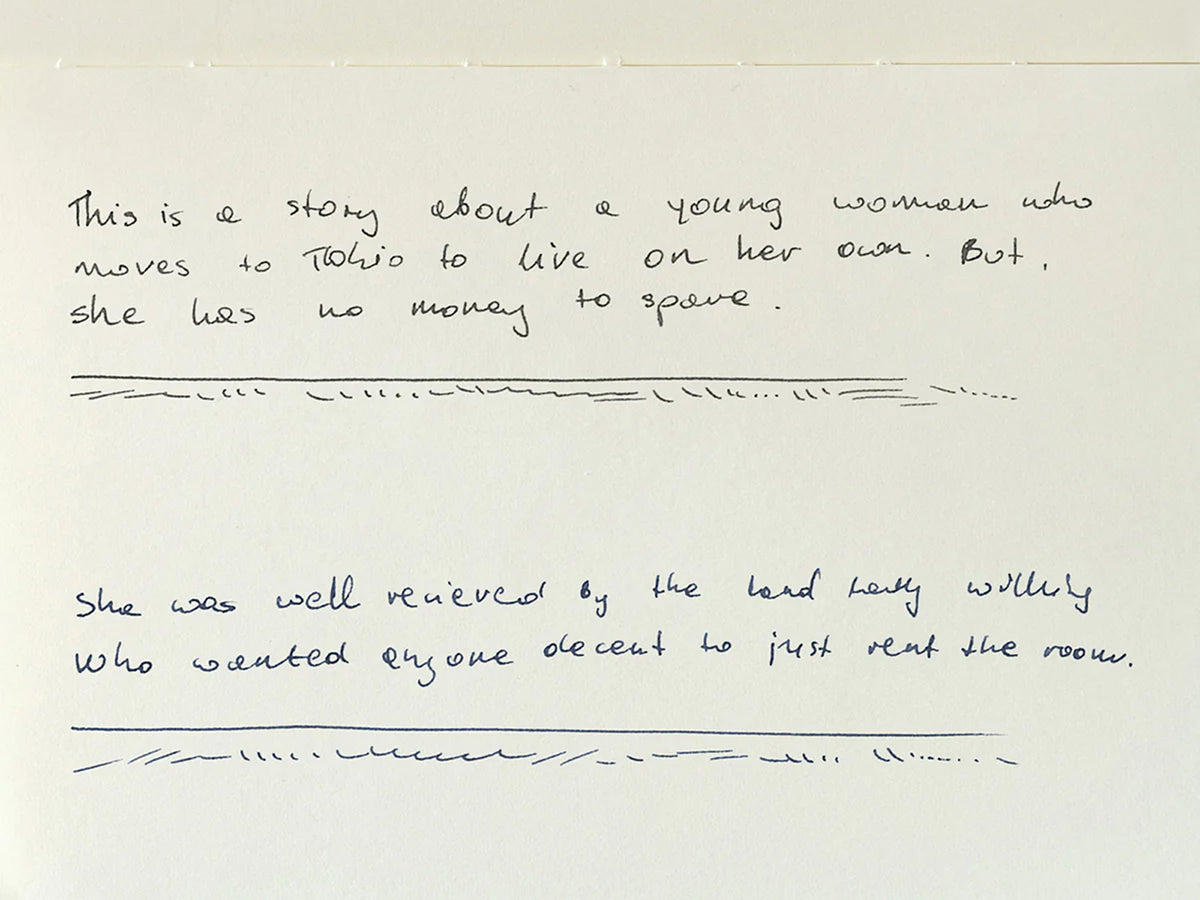 This is a story about a young woman who
moves to Tokio to live on her own. But,
she has no money to spare.
She was well recieved by the land
who wanted anyone decent to just rent the room.